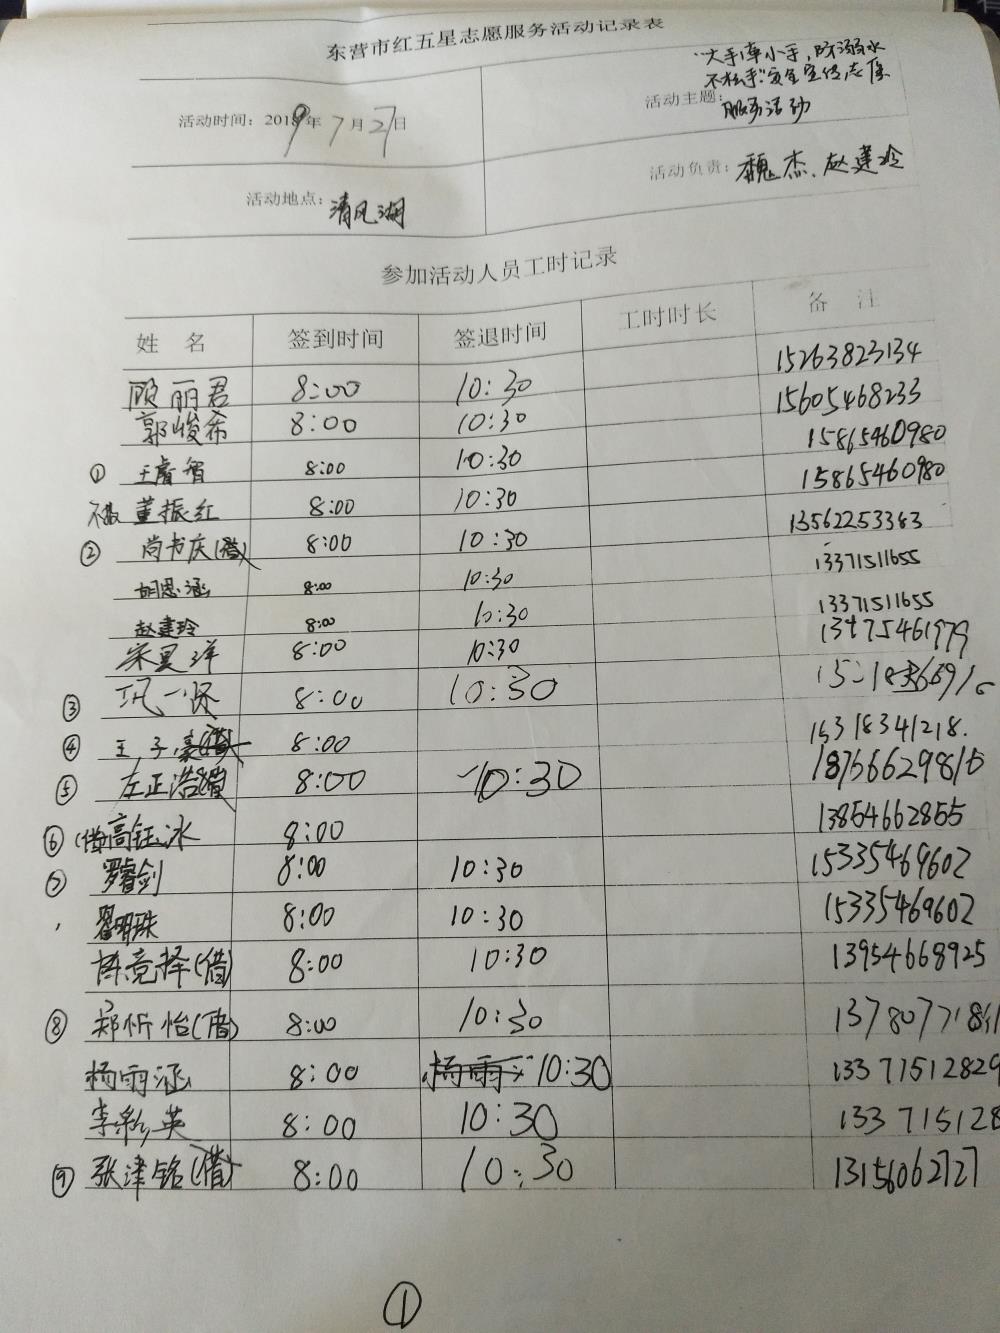 东营市红五星志愿服务活动记录表
活动时间：2019年7月27日
活动主题：“大手牵小手，防溺水
不松手”安全宣传志愿
服务活动
活动地点：清风湖
活动负责：魏杰、赵建玲
参加活动人员工时记录
姓 名 签到时间 签退时间 工时时长 备 注
顾丽君 8:00 10:30 15263823134
郭峻希 8:00 10:30 15605468233
① 王睿智 8:00 10:30 15865460980
董振红 8:00 10:30 15865460980
② 尚书庆(借) 8:00 10:30 13562253383
胡恩涵 8:00 10:30 13371511655
赵建玲 8:00 10:30 13371511655
宋昱洋 8:00 10:30 13475461979
③ 巩一贤 8:00 10:30
④ 王子豪(借) 8:00 15318341218.
⑤ 左正浩(借) 8:00 10:30
⑥ (借)高钰冰 8:00 13854662855
⑦ 罗睿剑 8:00 10:30 15335469602
翟明珠 8:00 10:30 15335469602
竟择(借) 8:00 10:30 13954668925
⑧ 郑忻怡(借) 8:00 10:30
杨雨涵 8:00 杨雨 10:30 13371512829
李彩英 8:00 10:30 133715128
⑨ 张津铭(借) 8:00 10:30 13156062727
①